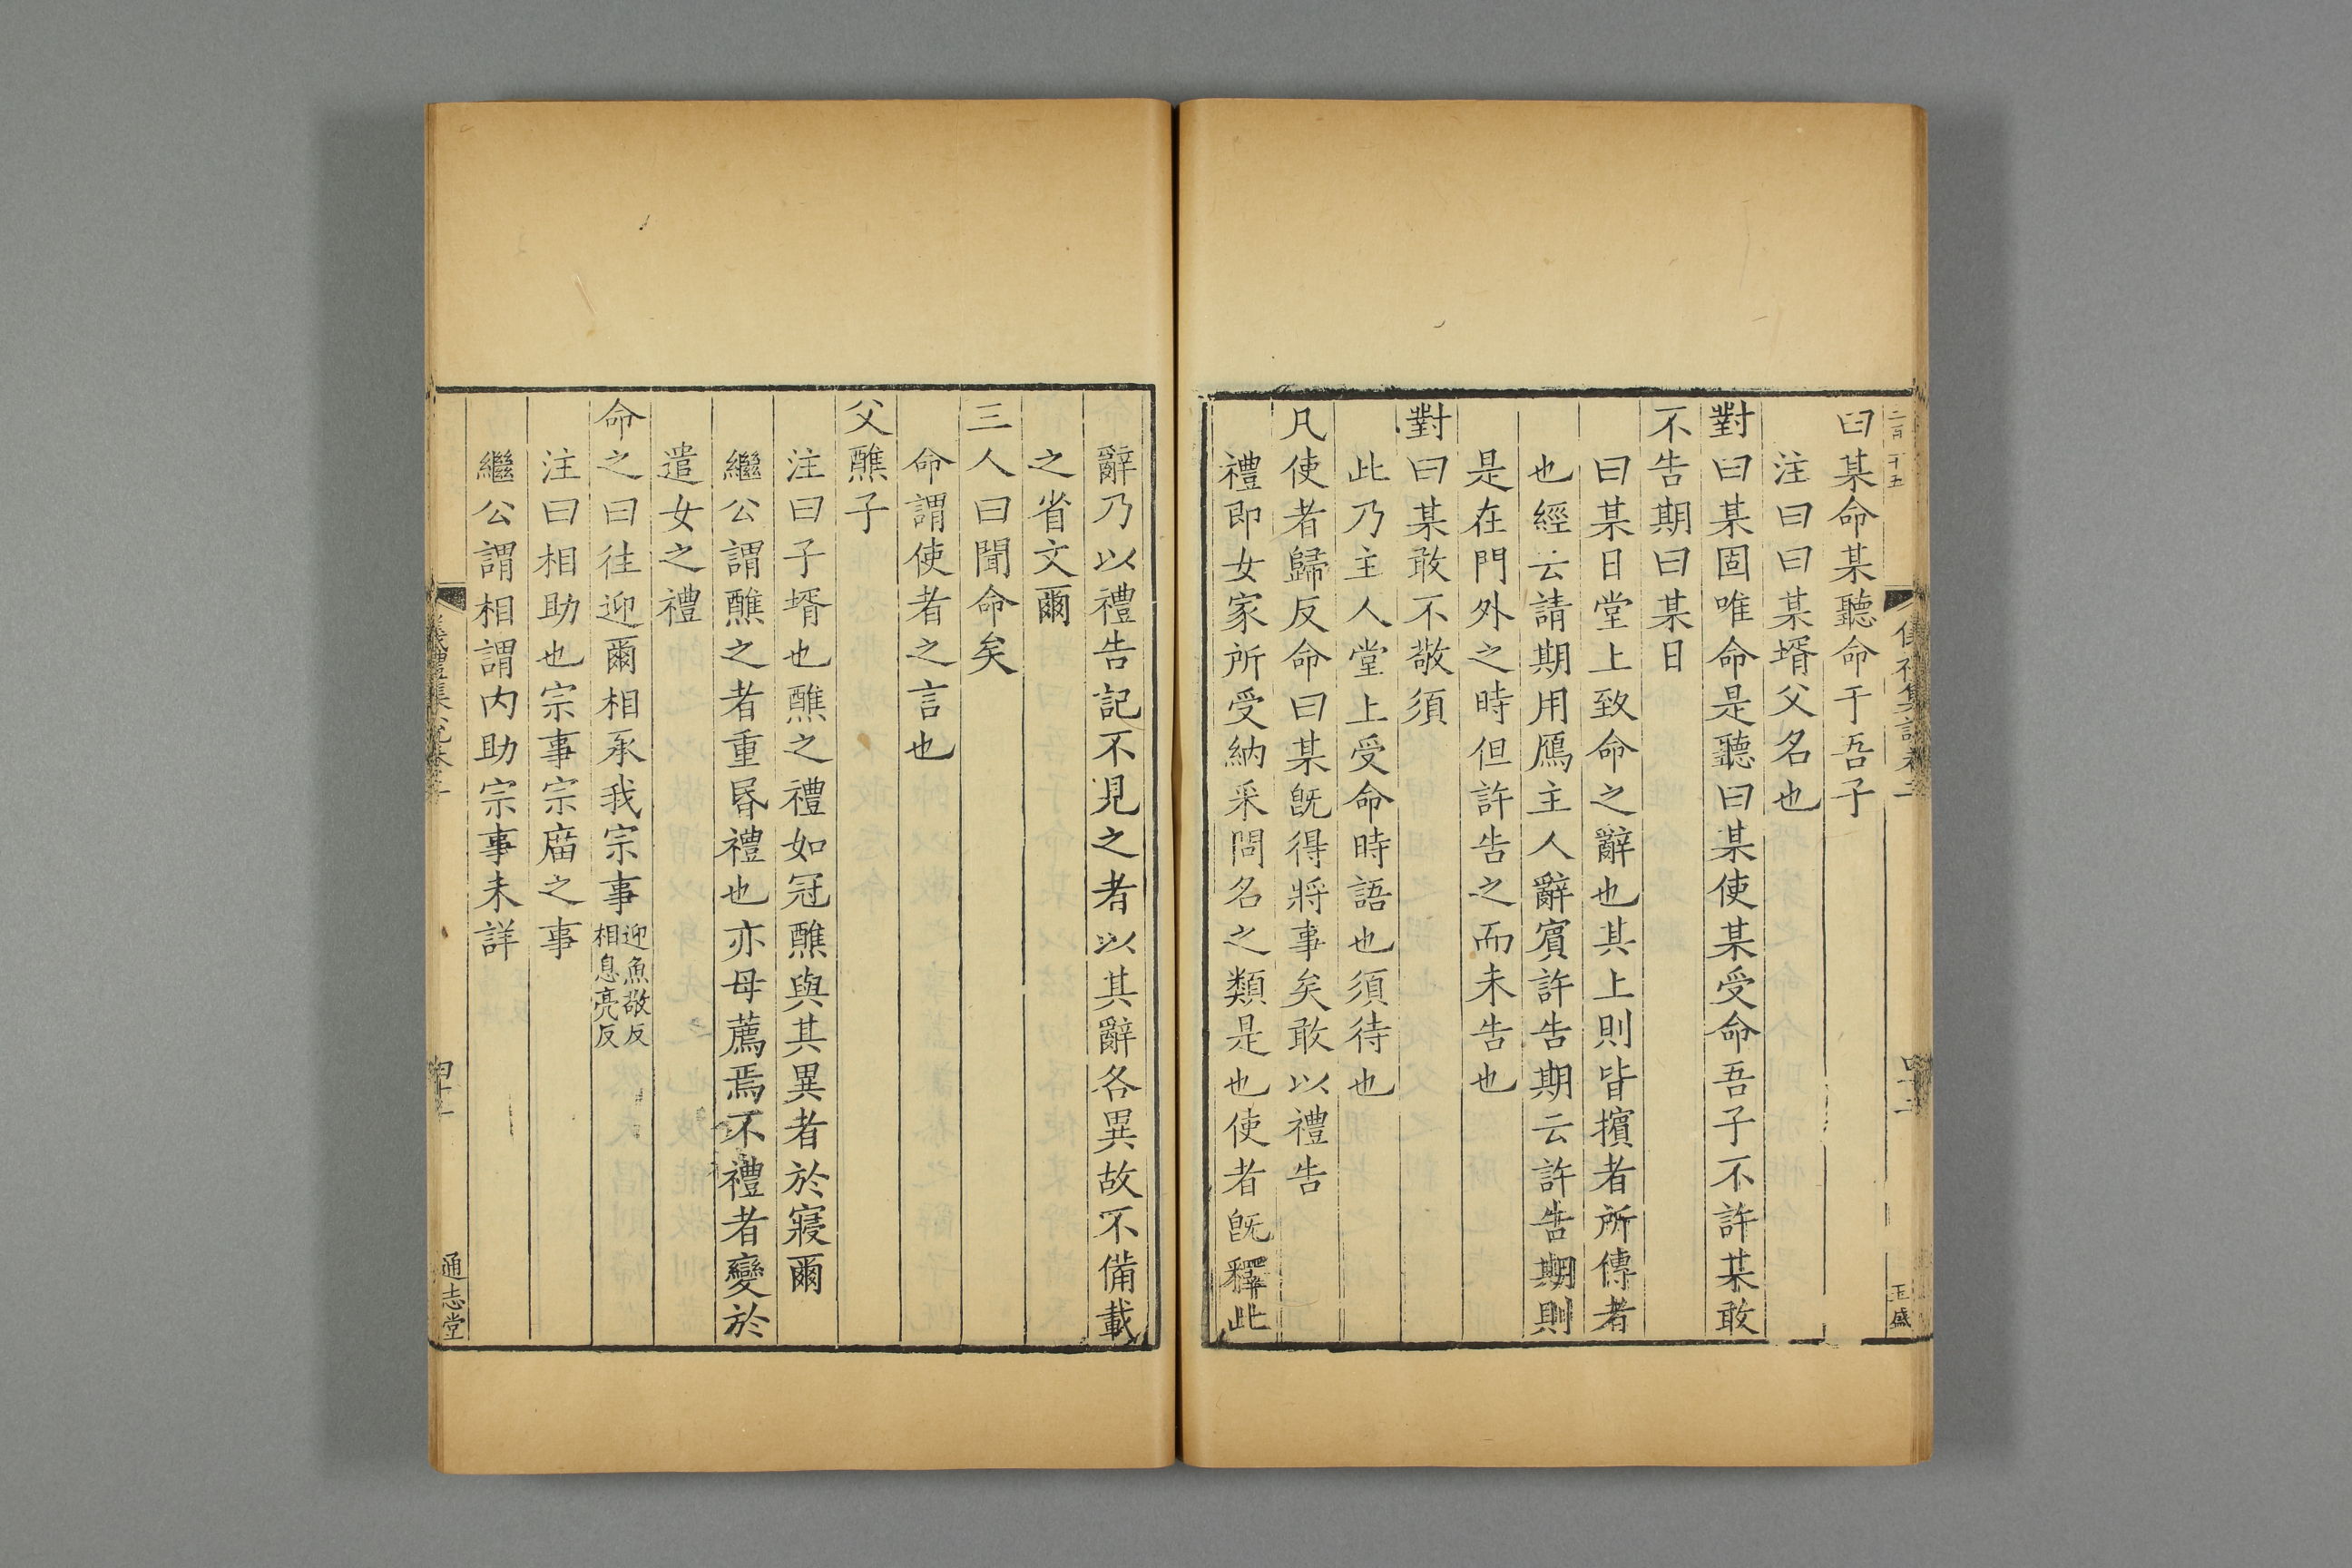 曰某命某聽命于吾子
注曰曰某壻父名也
對曰某固唯命是聽曰某使某受命吾子不許某敢
不告期曰某日
曰某日堂上致命之辭也其上則皆擯者所傳者
也經云請期用鴈主人辭賓許告期云許告期則
是在門外之時但許告之而未告也
對曰某敢不敬須
此乃主人堂上受命時語也須待也
凡使者歸反命曰某旣得將事矣敢以禮告
禮即女家所受納采問名之類是也使者旣釋此
辭乃以禮告記不見之者以其辭各異故不備載
之省文爾
三人曰聞命矣
命謂使者之言也
父醮子
注曰子壻也醮之禮如冠醮與其異者於寢爾
繼公謂醮之者重昬禮也亦母薦焉不禮者變於
遣女之禮
命之曰往迎爾相承我宗事迎魚敬反相息亮反
注曰相助也宗事宗廟之事
繼公謂相謂内助宗事未詳
通志堂